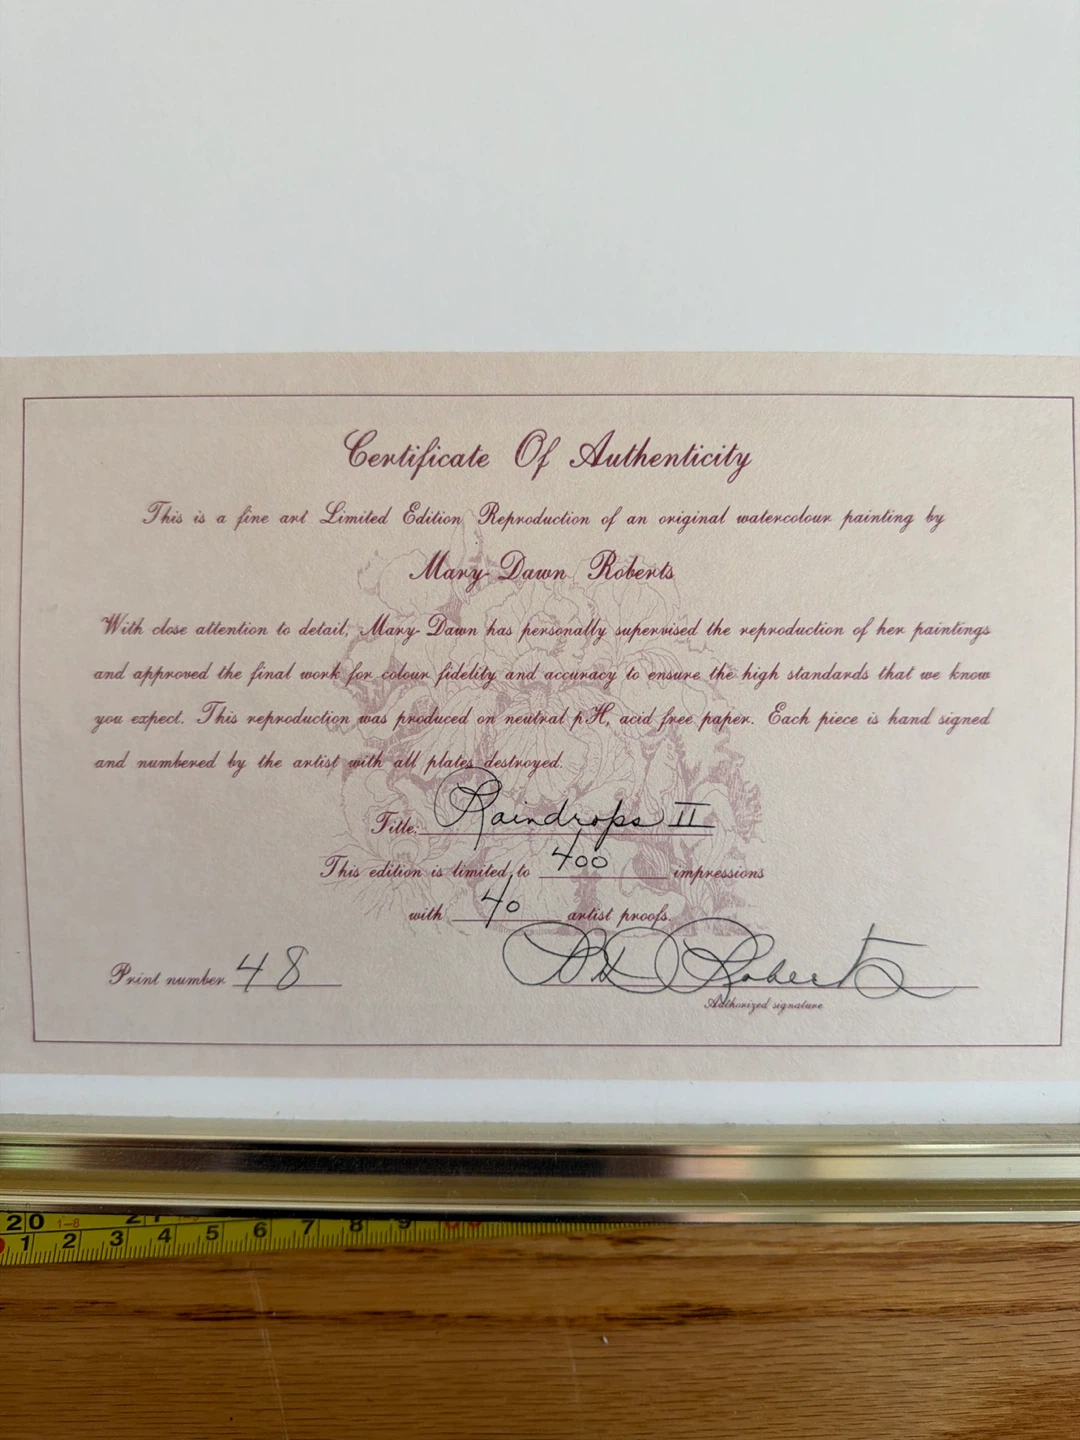 Certificate Of Authenticity
This is a fine art Limited Edition Reproduction of an original watercolour painting by
Mary-Dawn Roberts
With close attention to detail, Mary-Dawn has personally supervised the reproduction of her paintings
and approved the final work for colour fidelity and accuracy to ensure the high standards that we know
you expect. This reproduction was produced on neutral pH, acid free paper. Each piece is hand signed
and numbered by the artist with all plates destroyed.
Title: Raindrops II
This edition is limited to 400 impressions
with 40 artist proofs.
Print number 48
Roberts
Authorized signature
20 1-8 21
1 2 3 4 5 6 7 8 9